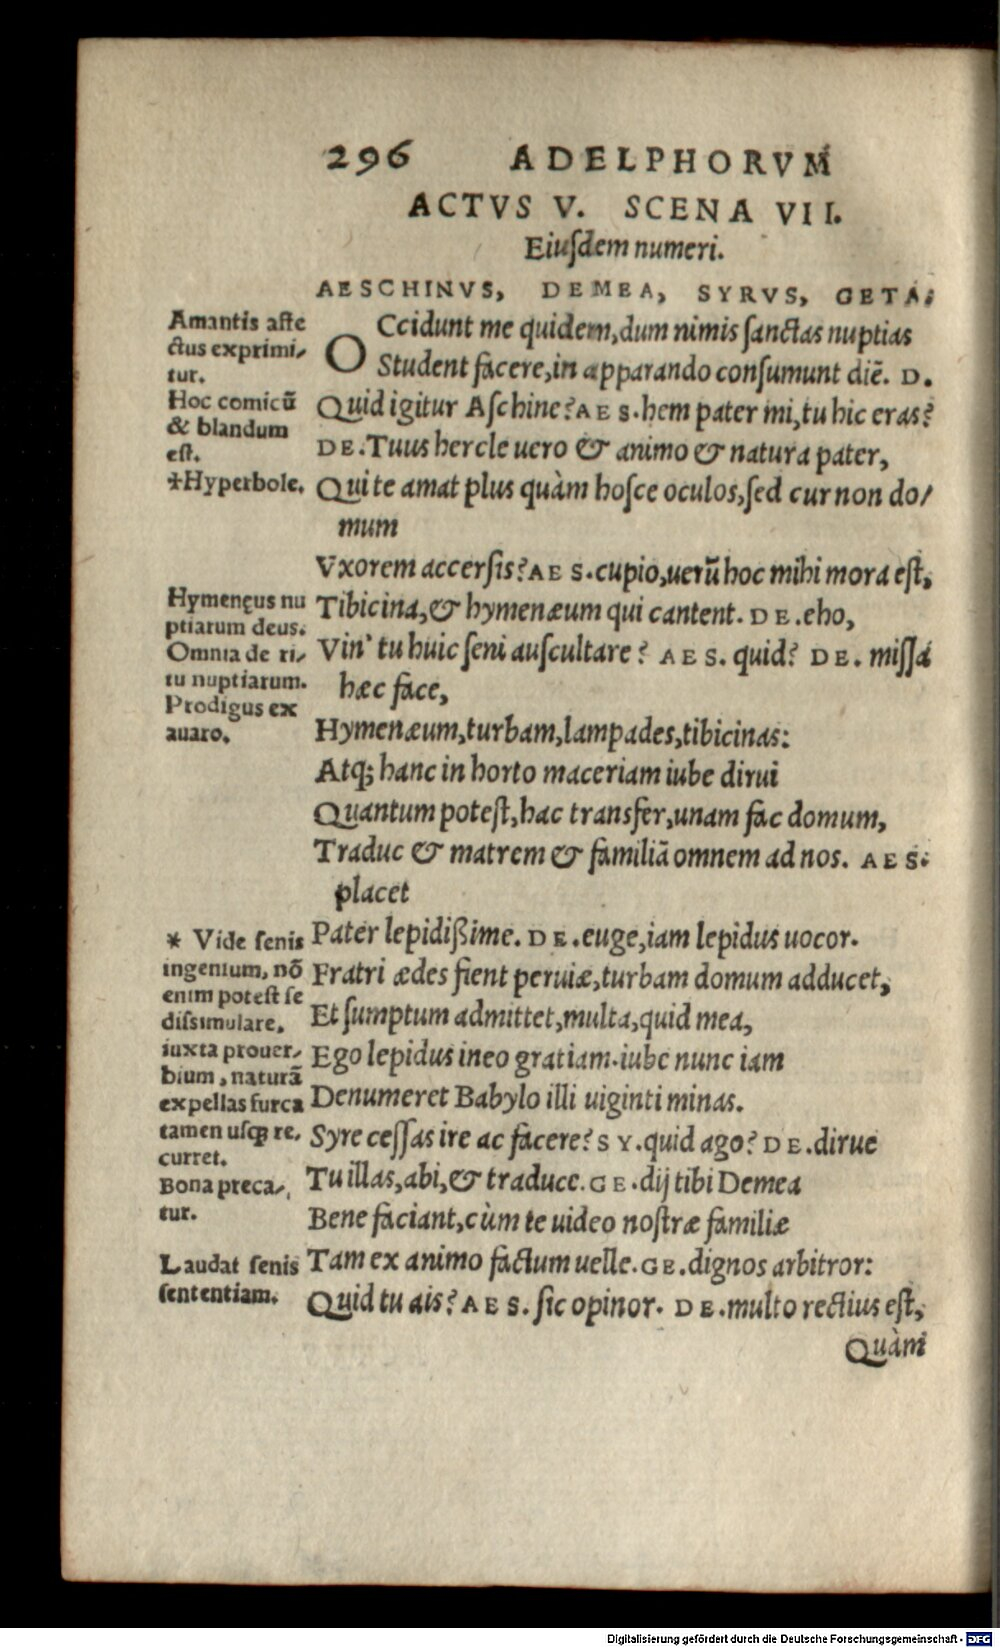 296 ADELPHORVM
ACTVS V. SCENA VII.
Eiuſdem numeri.
AESCHINVS, DEMEA, SYRVS, GETA.
OCcidunt me quidem, dum nimis ſanctas nuptias
Student facere, in apparando conſumunt diē. D.
Quid igitur Aſchine? AES. hem pater mi, tu hic eras?
DE. Tuus hercle uero & animo & natura pater,
Qui te amat plus quàm hoſce oculos, ſed cur non do/
mum
Vxorem accerſis? AES. cupio, uerũ hoc mihi mora eſt,
Tibicina, & hymenæum qui cantent. DE. eho,
Vin' tu huic ſeni auſcultare? AES. quid? DE. miſſa
hæc face,
Hymenæum, turbam, lampades, tibicinas:
Atq; hanc in horto maceriam iube dirui
Quantum poteſt, hac transfer, unam fac domum,
Traduc & matrem & familiã omnem ad nos. AES.
placet
Pater lepidißime. DE. euge, iam lepidus uocor.
Fratri ædes fient peruiæ, turbam domum adducet,
Et ſumptum admittet, multa, quid mea,
Ego lepidus ineo gratiam. iube nunc iam
Denumeret Babylo illi uiginti minas.
Syre ceſſas ire ac facere? SY. quid ago? DE. dirue
Tu illas, abi, & traduce. GE. dij tibi Demea
Bene faciant, cùm te uideo noſtræ familiæ
Tam ex animo factum uelle. GE. dignos arbitror:
Quid tu ais? AES. ſic opinor. DE. multo rectius eſt,
Quàm
Amantis affe
ctus exprimi/
tur.
Hoc comicũ
& blandum
eſt.
+Hyperbole.
Hymenęus nu
ptiarum deus.
Omnia de ri/
tu nuptiarum.
Prodigus ex
auaro.
* Vide ſenis
ingenium, nõ
enim poteſt ſe
diſsimulare,
iuxta prouer/
bium, naturã
expellas furca
tamen uſq; re,
curret.
Bona preca/
tur.
Laudat ſenis
ſententiam.
Digitalisierung gefördert durch die Deutsche Forschungsgemeinschaft - DFG